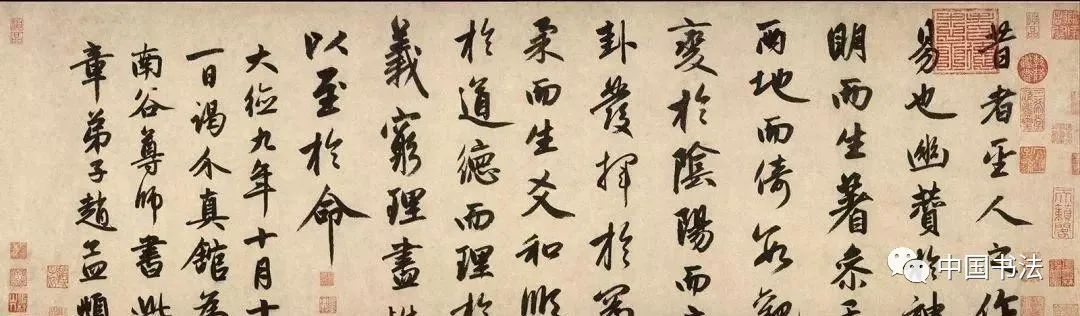 昔者聖人之作
易也幽贊於神
明而生蓍參天
兩地而倚數觀
變於陰陽而立
卦發揮於剛
柔而生爻和順
於道德而理於
義窮理盡性
以至於命
大德九年十月十
一日謁介真館為
南谷尊師書此
章弟子趙孟頫
中国书法